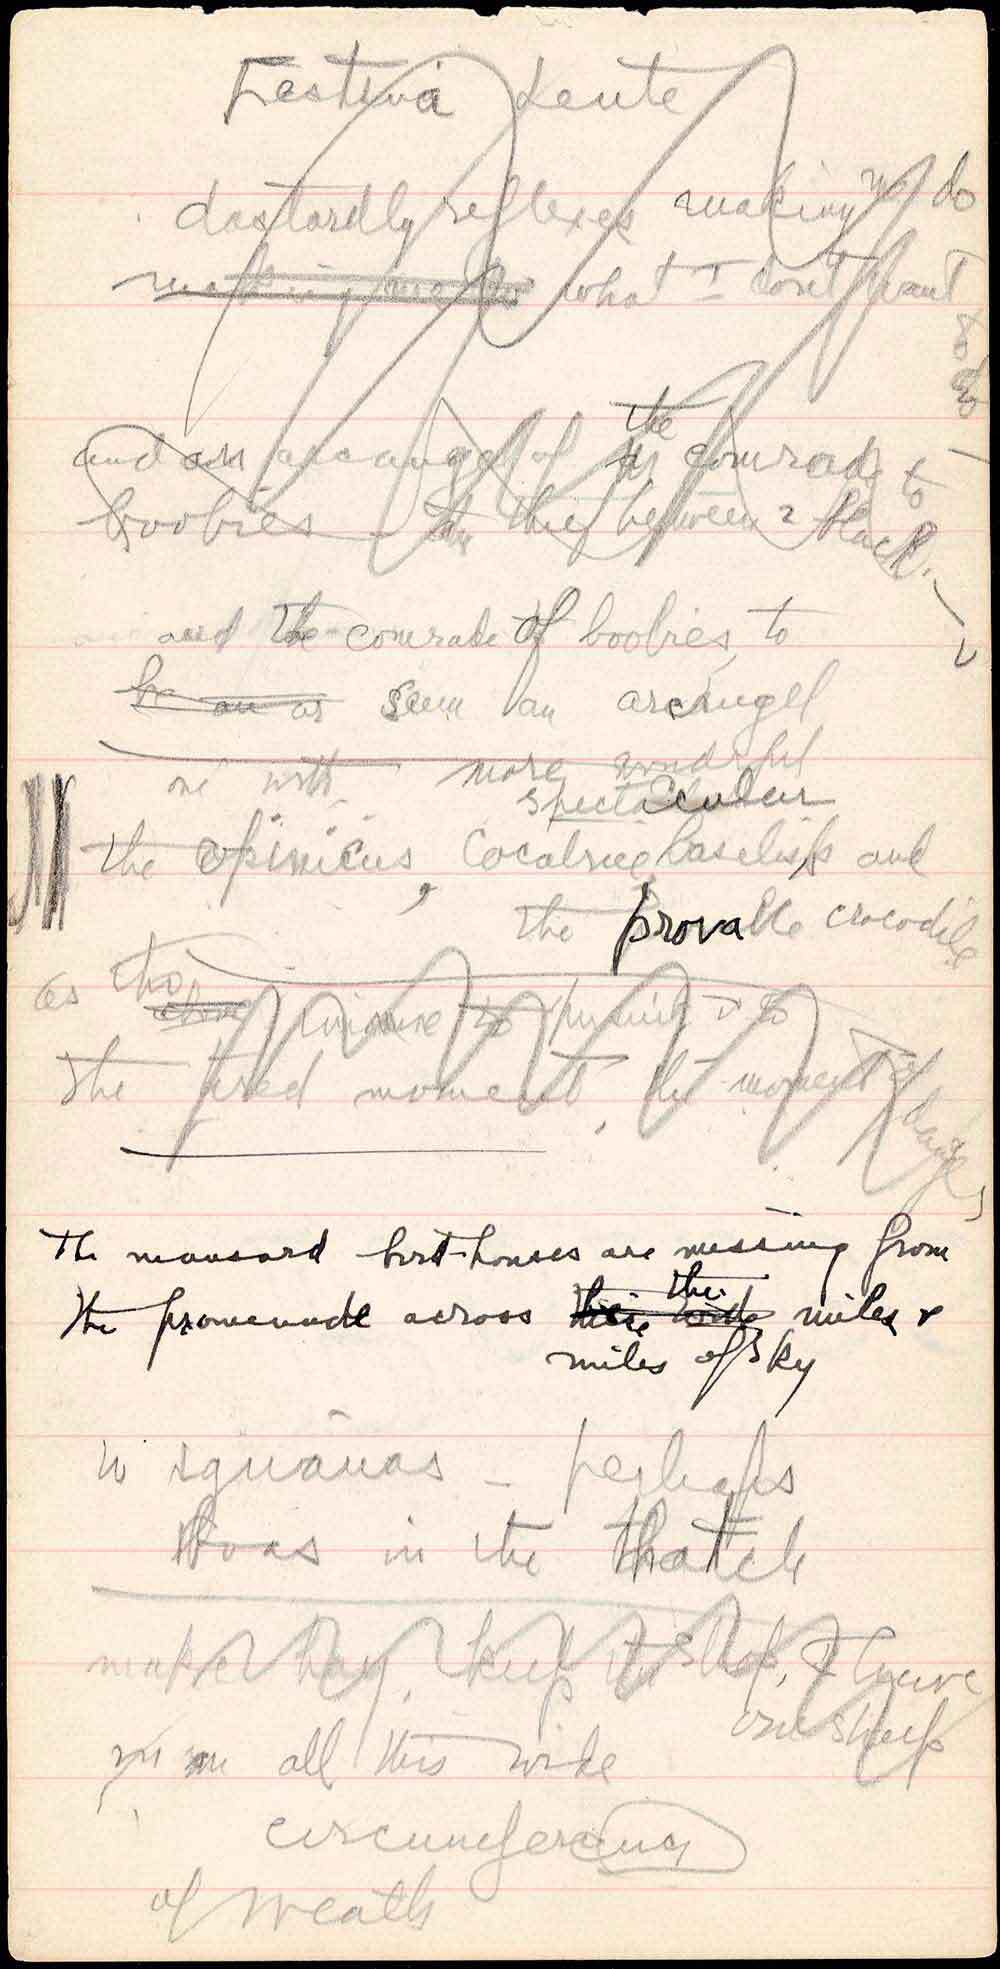 Festina Lente
dastardly reflexes making me do
making me do what I dont want
to do —
and an arcangel of the comrade to
boobies — the thief between 2 black
and the comrade of boobies, to
be an as seem an archangel
one with more wonderful
spectacular
the opinicus, Cocatrice baselisk and
the provable crocodile
as tho
the tired moment, the moment of danger,
The mansard bird-houses are missing from
the promenade across these the wide miles &
miles of sky
w iguanas — perhaps
Boas in the thatch
make hay, keep the shop, I have
one sheep
in all this wide
circumference
of